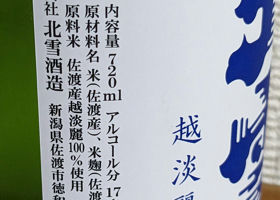 越淡麗
内容量 720ml アルコール分 17
原材料名 米(佐渡産)、米麹(佐渡
原料米 佐渡産越淡麗100%使用
社 北雪酒造 新潟県佐渡市徳和